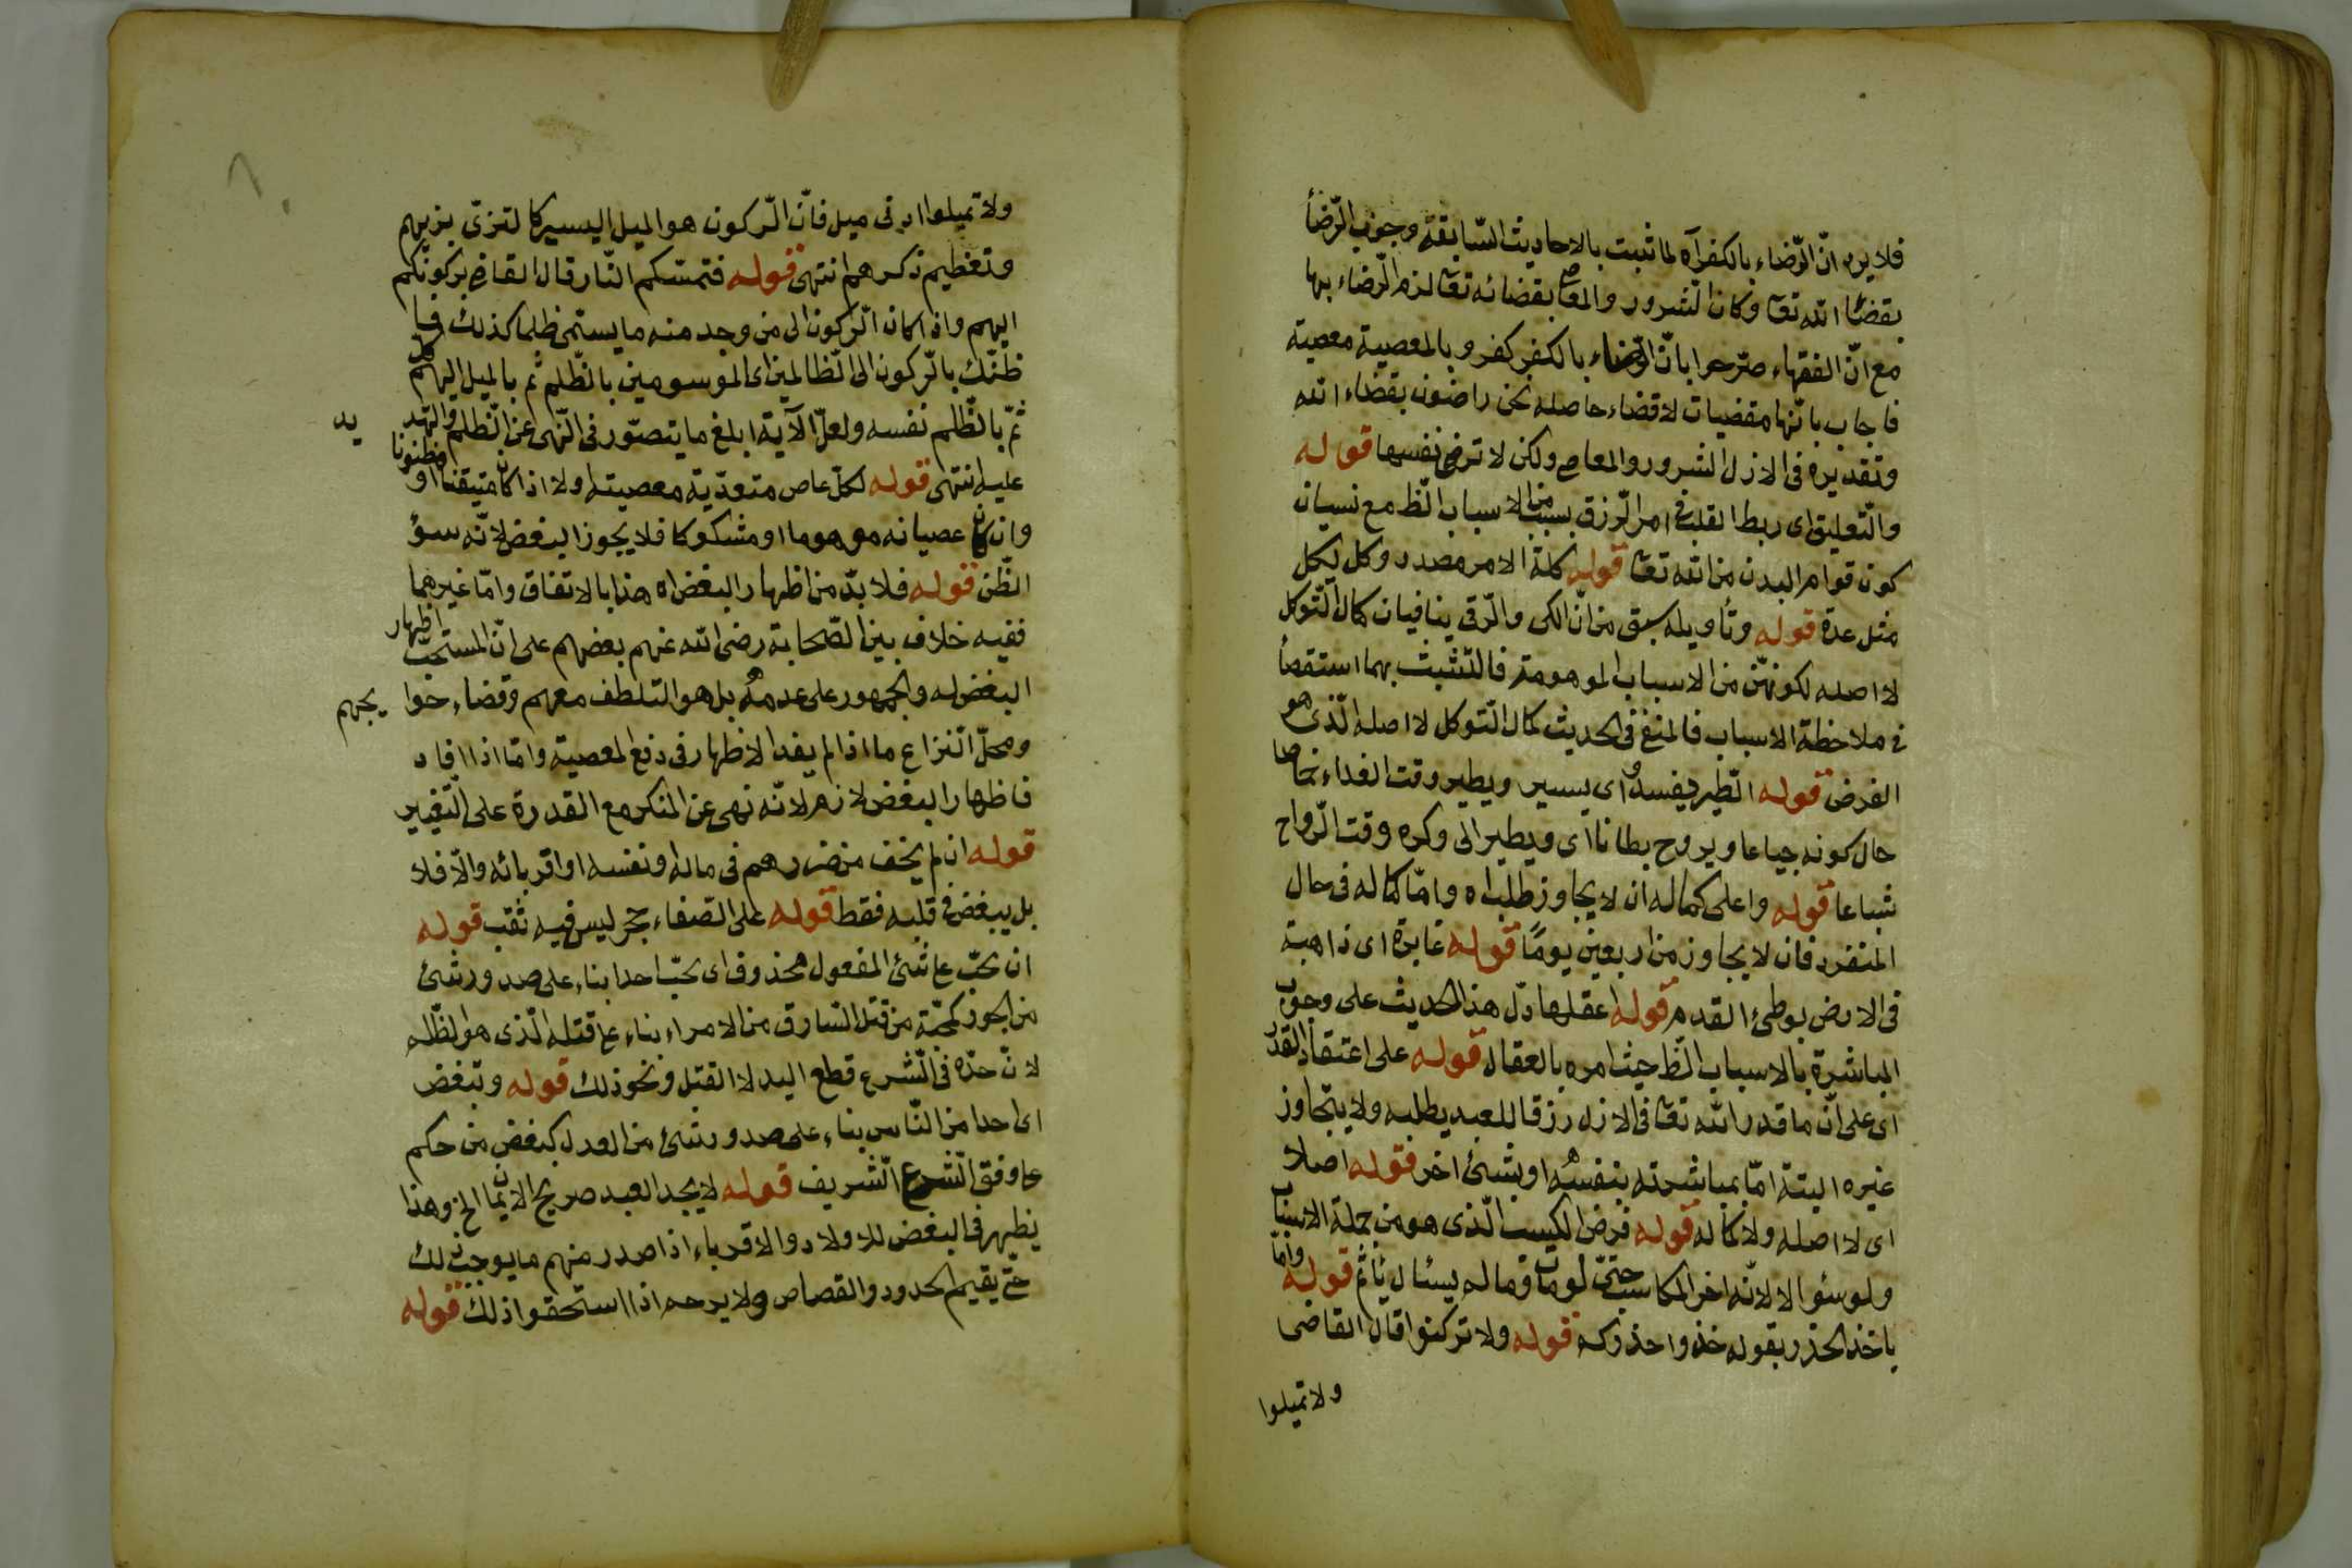 فلا يرد انّ الرّضاء بالكفر آه لما ثبت بالاحاديث السّابقة وجوب الرّضأ
بقضأ الله تعا وكان الشرور والمعاصي بقضائه تعا لزم الرّضاء بها
مع انّ الفقهاء صرّحوا بانّ الرّضاء بالكفر كفر وبالمعصية معصية
فاجاب بانّها مقضيات لا قضاء حاصله نحن راضون بقضاء الله
وتقديره فى الازل الشرور والمعاصي ولكن لا نرضى نفسها قوله
والتّعليق اى ربط القلب فى امر الرّزق بسبب من الاسباب الظ مع نسيان
كون قوام البدن من الله تعا قوله كلة الامر مصدر وكل يكل
مثل عدة قوله وتأويله سبق من انّ الكى والرّقى ينافيان كمال التّوكل
لا اصله لكونهن من الاسباب الموهومة فالتشبث بهما استقصأ
فى ملاحظة الاسباب فالمنفى فى الحديث كمال التّوكل لا اصله الّذى هو
الفرض قوله الطّير يغدو اى يسير ويطير وقت الغداء خماصا
حال كونه جياعا ويروح بطانا اى ويطير الى وكره وقت الرّواح
شباعا قوله واعلى كماله ان لا يجاوز طلبه اه وامّا كماله فى حال
المنفرد فان لا يجاوز من اربعين يومًا قوله غابرة اى ذاهبة
فى الارض بوطئ القدم قوله اعقلها دلّ هذا الحديث على وجوب
المباشرة بالاسباب الظ حيث امره بالعقال قوله على اعتقاد القدر
اى على انّ ما قدر الله تعا فى الازل رزقا للعبد يطلبه ولا يتجاوز
غيره البتة امّا بمباشرته بنفسه او بشئ اخر قوله اصلا
اى لا اصله ولا كماله قوله فرض الكسب الّذى هو من جملة الاسباب
ولو سئوالا لانّه اخر المكاسب حتّى لو مات وما له يسئال يأثم قوله وامّا
ياخذ الحذر بقوله خذوا حذركم قوله ولا تركنوا قال القاضى
ولا تميلوا
ولا تميلوا ادنى ميل فانّ الرّكون هو الميل اليسير كا لتزىّ بزيهم
وتعظيم ذكرهم انتهى قوله فتمسّكم النّار قال القاضى بركونكم
اليهم واذا كان الرّكون الى من وجد منه ما يسمّى ظلما كذلك فما
ظنّك بالرّكون الى الظّالمين اى الموسومين بالظّلم ثم بالميل اليهم كل
ثمّ بالظّلم نفسه ولعلّ الآية ابلغ ما يتصوّر فى النّهى عن الظّلم والتهديد
عليه انتهى قوله لكلّ عاص متعدّية معصيته ولا اذا كان متيقنا او مظنونا
وان كان عصيانه موهوما او مشكوكا فلا يجوز البغض لانّه سوؤ
الظّن قوله فلا بدّ من اظهار البغض اه هذا بالاتفاق وامّا غيرهما
ففيه خلاف بين الصّحابة رضى الله عنهم بعضهم على انّ المستحبّ اظهار
البغض له والجمهور على عدمه بل هو التلطف معهم وقضاء حوايجهم
ومحلّ النزاع ما اذا لم يفد الاظهار فى دفع المعصية وامّا اذا افاد
فاظهار البغض لازم لانّه نهى عن المنكر مع القدرة على التّغيير
قوله ان لم يخف من ضررهم فى ماله ونفسه او اقربائه والّا فلا
بل يبغض فى قلبه فقط قوله على الصّفاء حجر ليس فيه ثقب قوله
ان تحبّ على شئ المفعول محذوف اى تحبّ احدا بناء على صدور شئ
من الجور كمحبّة من قتل السّارق من الامراء بناء على قتله الّذى هو الظّلم
لانّ حدّه فى الشّرع قطع اليد لا القتل ونحو ذلك قوله وتبغض
اى احدا من النّاس بناء على صدور شئ من العدل كبغض من حكم
على وفق الشّرع الشّريف قوله لا يجد العبد صريح الايمان الخ وهذا
يظهر فى البغض للاولاد والاقرباء اذا صدر منهم ما يوجب ذلك
حتّى يقيم الحدود والقصاص ولا يرحم اذا استحقوا ذلك قوله